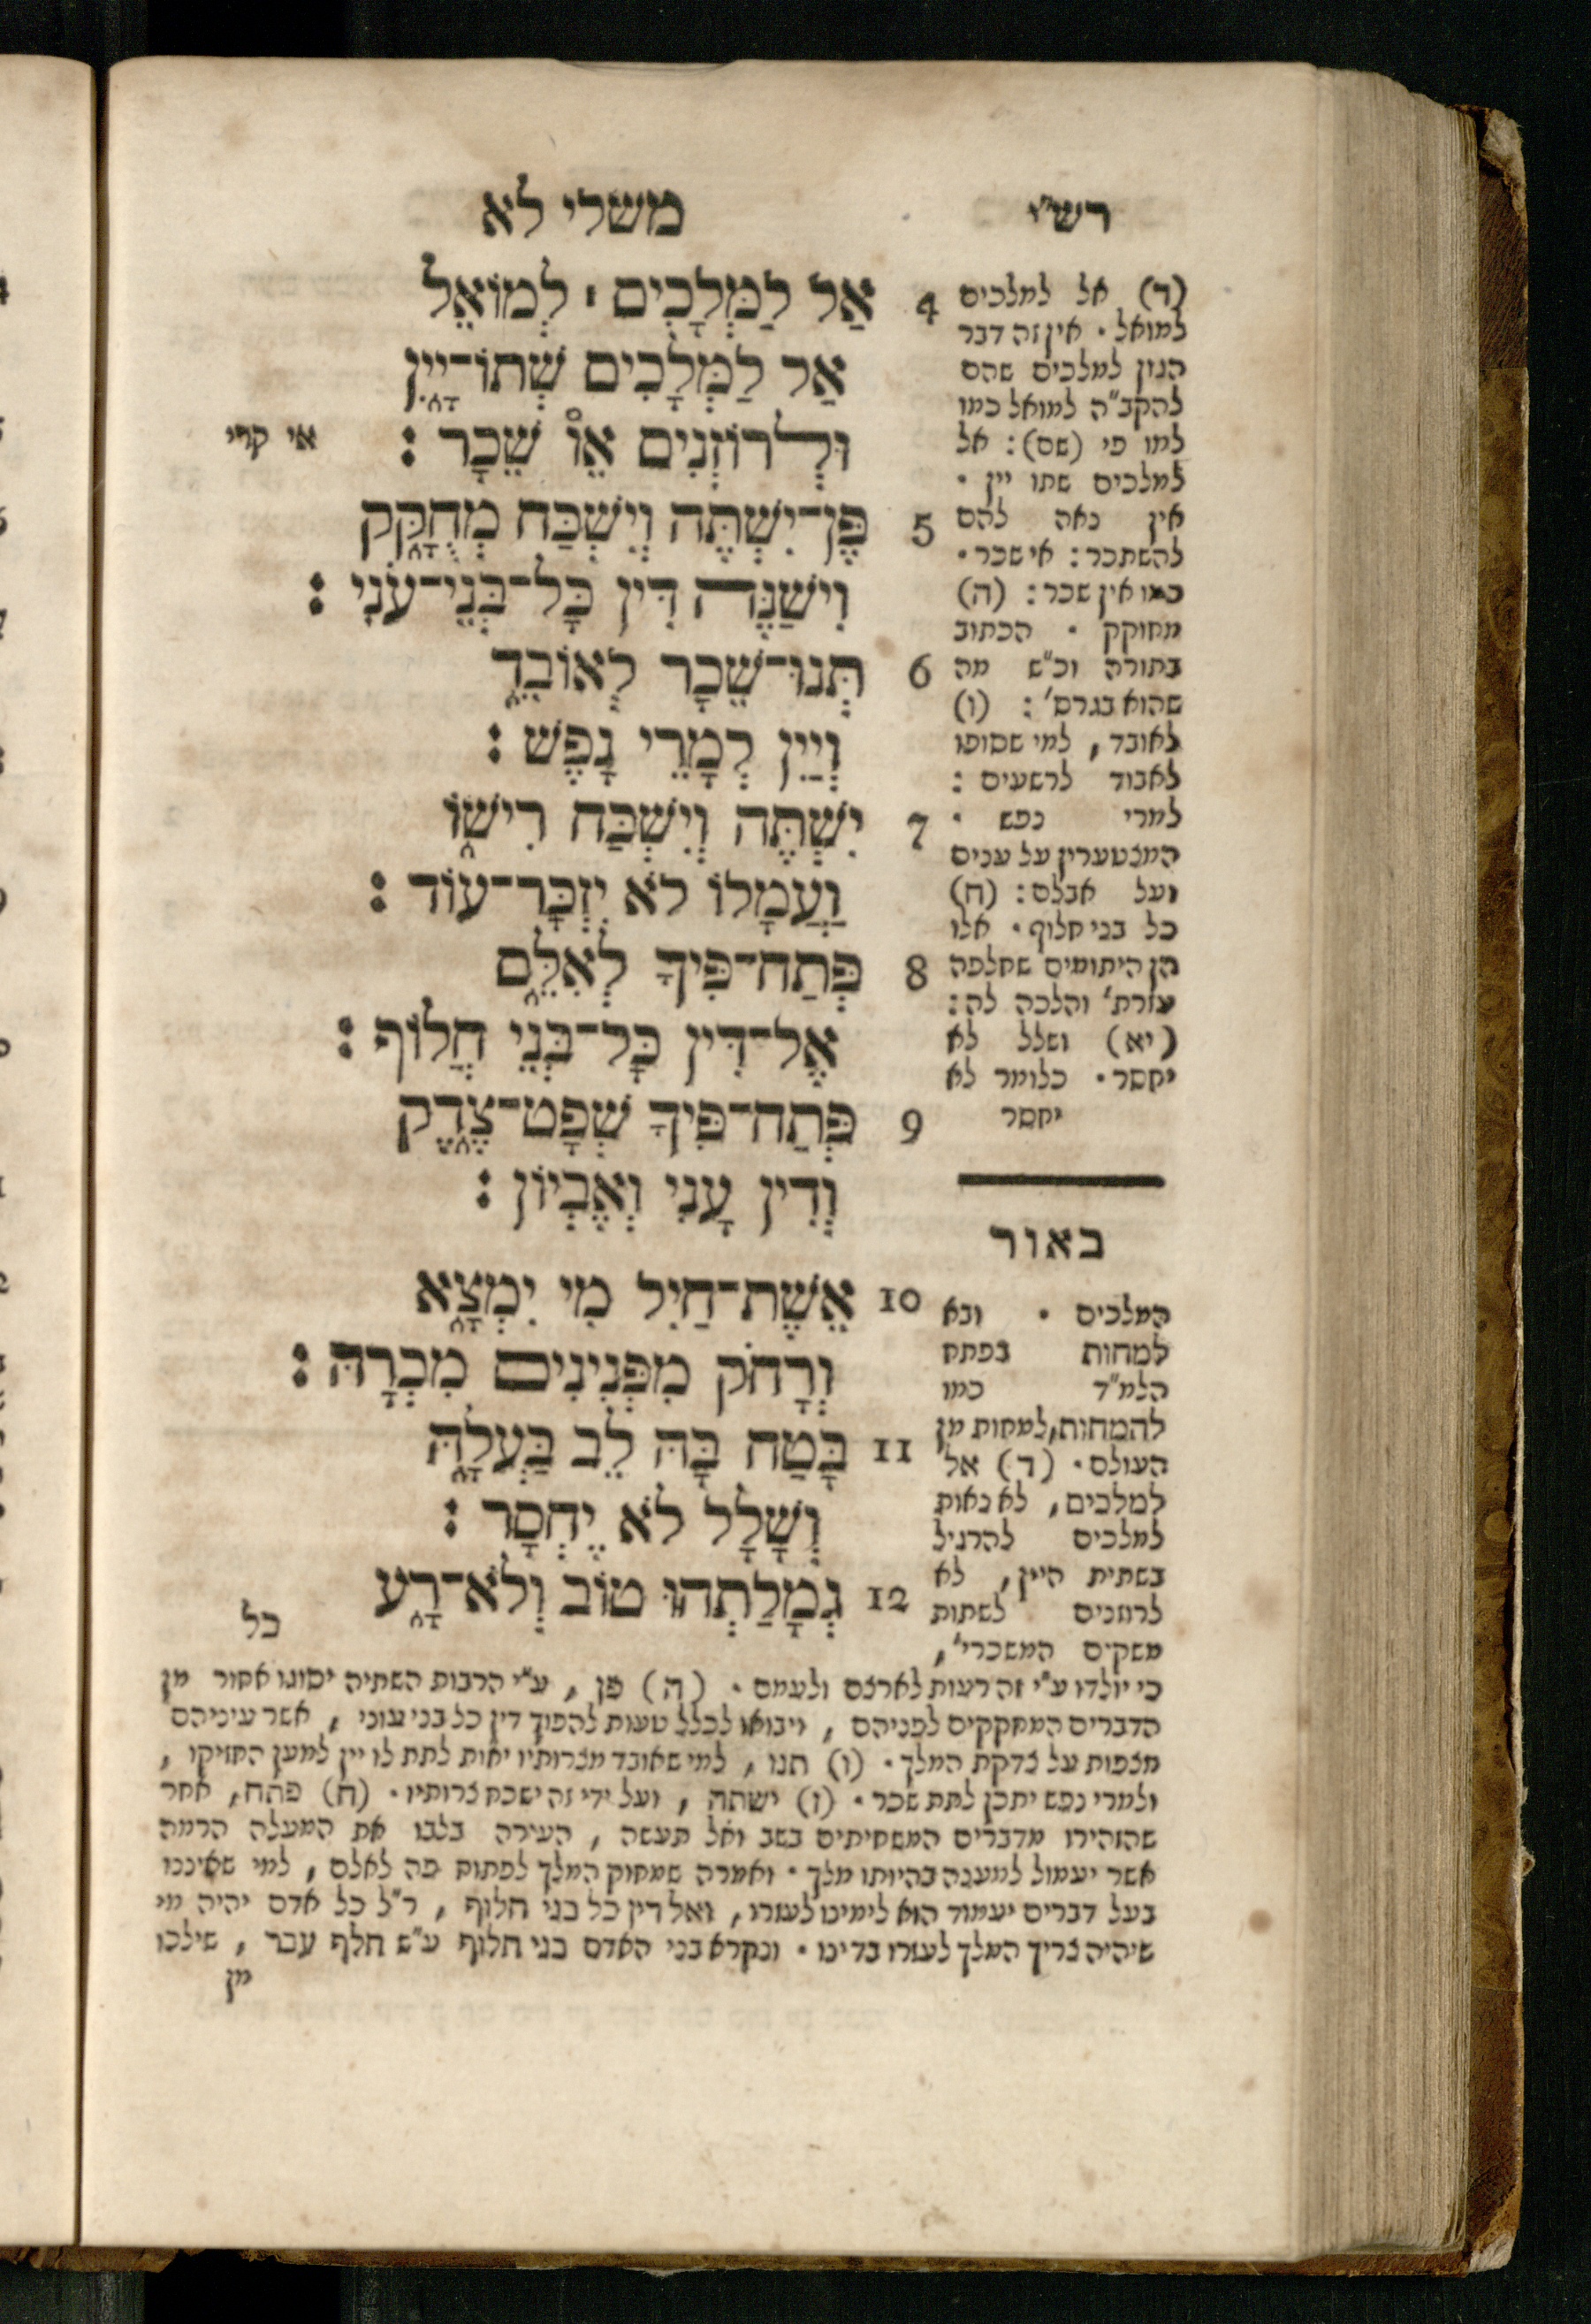 משלי לא
רש״י
4 אַל לַמְּלָכִים ׀ לְמוֹאֵל
אַל לַמְּלָכִים שְׁתוֹ־יָיִן
וּלְרוֹזְנִים אֵוֹ שֵׁכָר :
אי קרי
5 פֶּן־יִשְׁתֶּה וְיִשְׁכַּח מְחֻקָּק
וִישַׁנֶּה דִּין כָּל־בְּנֵי־עֹנִי :
6 תְּנוּ־שֵׁכָר לְאוֹבֵד
וְיַיִן לְמָרֵי נָפֶשׁ :
7 יִשְׁתֶּה וְיִשְׁכַּח רִישׁוֹ
וַעֲמָלוֹ לֹא יִזְכָּר־עוֹד :
8 פְּתַח־פִּיךָ לְאִלֵּם
אֶל־דִּין כָּל־בְּנֵי חֲלוֹף :
9 פְּתַח־פִּיךָ שְׁפָט־צֶדֶק
וְדִין עָנִי וְאֶבְיוֹן :
10 אֵשֶׁת־חַיִל מִי יִמְצָא
וְרָחֹק מִפְּנִינִים מִכְרָהּ :
11 בָּטַח בָּהּ לֵב בַּעְלָהּ
וְשָׁלָל לֹא יֶחְסָר :
12 גְּמָלַתְהוּ טוֹב וְלֹא־רָע
כל
(ד) אל למלכים
למואל • אין זה דבר
הגון למלכים שהם
להקב״ה למואל כמו
למו פי (שם) : אל
למלכים שתו יין •
אין נאה להם
להשתכר : אי שכר •
כמו אין שכר : (ה)
מחוקק • הכתוב
בתורה וכ״ש מה
שהוא בגרס׳ : (ו)
לאובד , למי שסופו
לאבוד לרשעים :
למרי נפש •
המצטערין על עניים
ועל אבלם : (ח)
כל בני חלוף • אלו
הן היתומים שחלפה
עזרת׳ והלכה לה :
(יא) ושלל לא
יחסר • כלומר לא
יחסר
באור
המלכים • ובא
למחות בפתח
הלמ״ד כמו
להמחות, למחות מן
העולם • (ד) אל
למלכים , לא נאות
למלכים להרגיל
בשתית היין , לא
לרוזנים לשתות
משקים המשכרי׳ ,
כי יולדו ע״י זה רעות לארצם ולעמם • (ה) פן , ע״י הרבות השתיה יסוגו אחור מן
הדברים המחקקים לפניהם , ויבואו לכלל טעות להפוך דין כל בני עוני , אשר עיניהם
מצפות על צדקת המלך • (ו) תנו , למי שאובד מצרותיו יאות לתת לו יין למען החזיקו ,
ולמרי נפש יתכן לתת שכר • (ז) ישתה , ועל ידי זה ישכח צרותיו • (ח) פתח, אחר
שהזהירו מדברים המשחיתים בשב ואל תעשה , העירה בלבו את המעלה הרמה
אשר יעמול למענה בהיותו מלך • ואמרה שמחוק המלך לפתוח פה לאלם , למי שאיננו
בעל דברים יעמוד הוא לימינו לעזרו, ואל דין כל בני חלוף , ר״ל כל אדם יהיה מי
שיהיה צריך המלך לעזרו בדינו • ונקרא בני האדם בני חלוף ע״ש חלף עבר , שילכו
מן